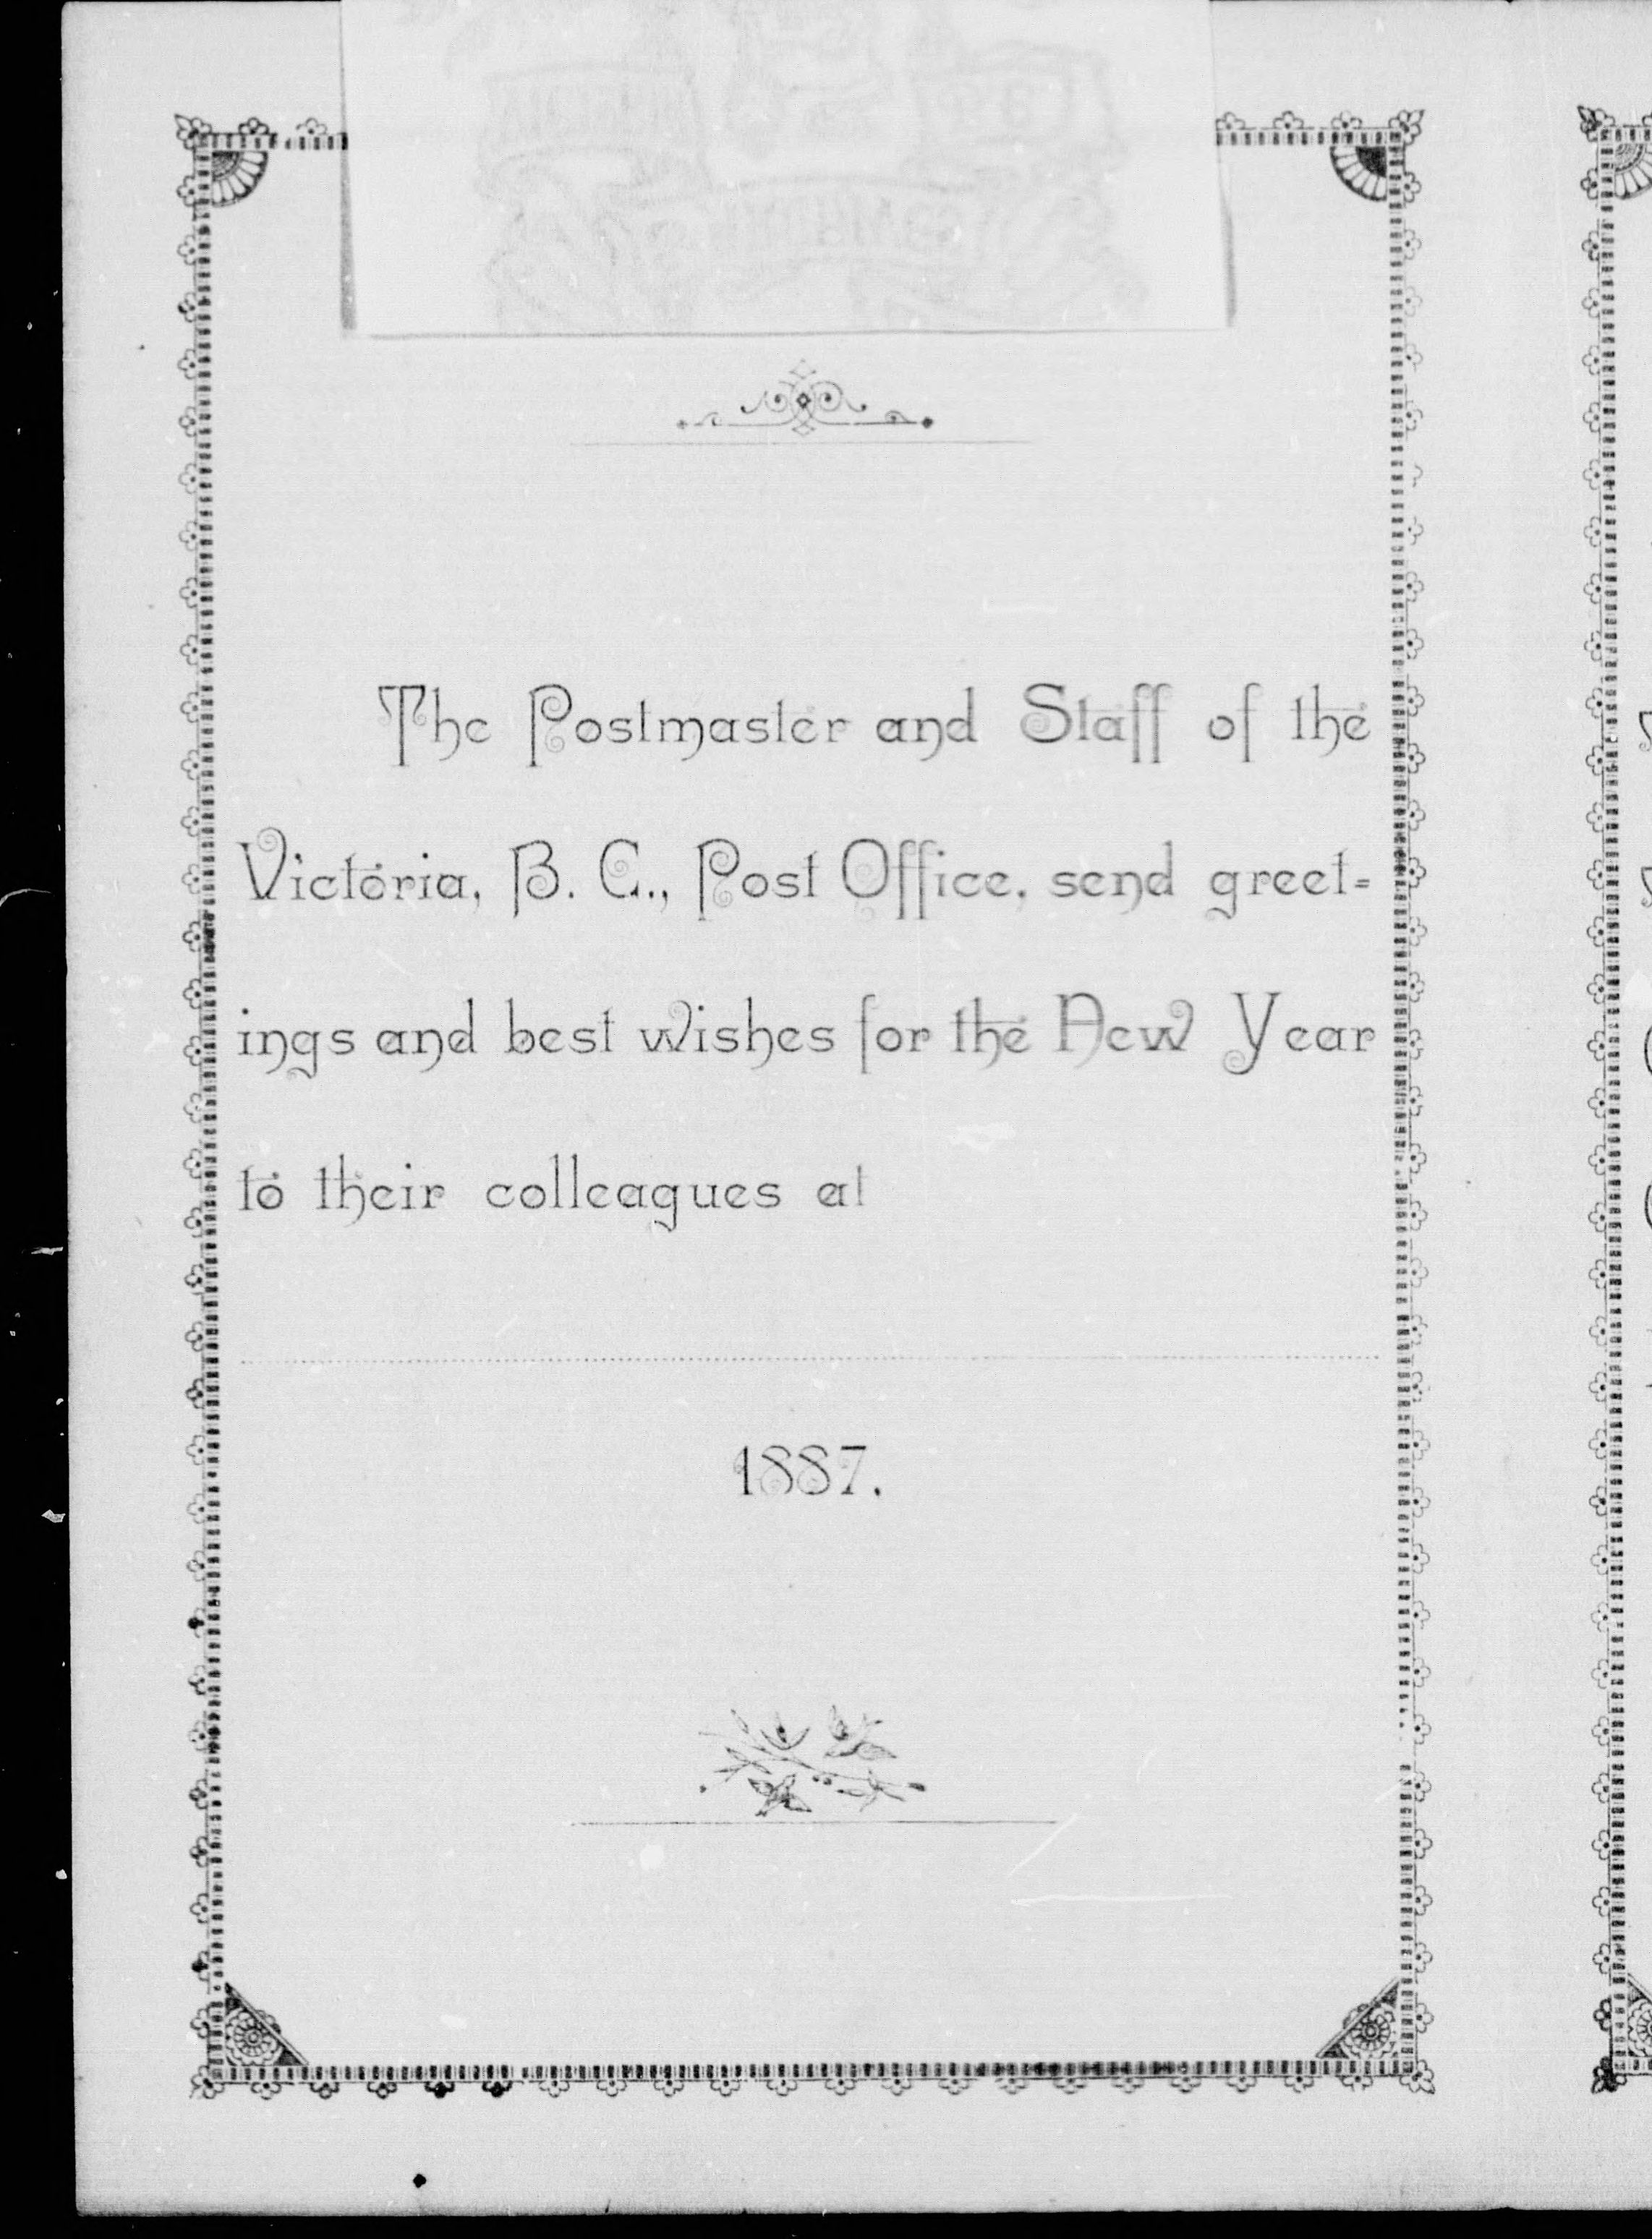 The Postmaster and Staff of the
Victoria, B. C., Post Office, send greet=
ings and best wishes for the New Year
to their colleagues at
1887.